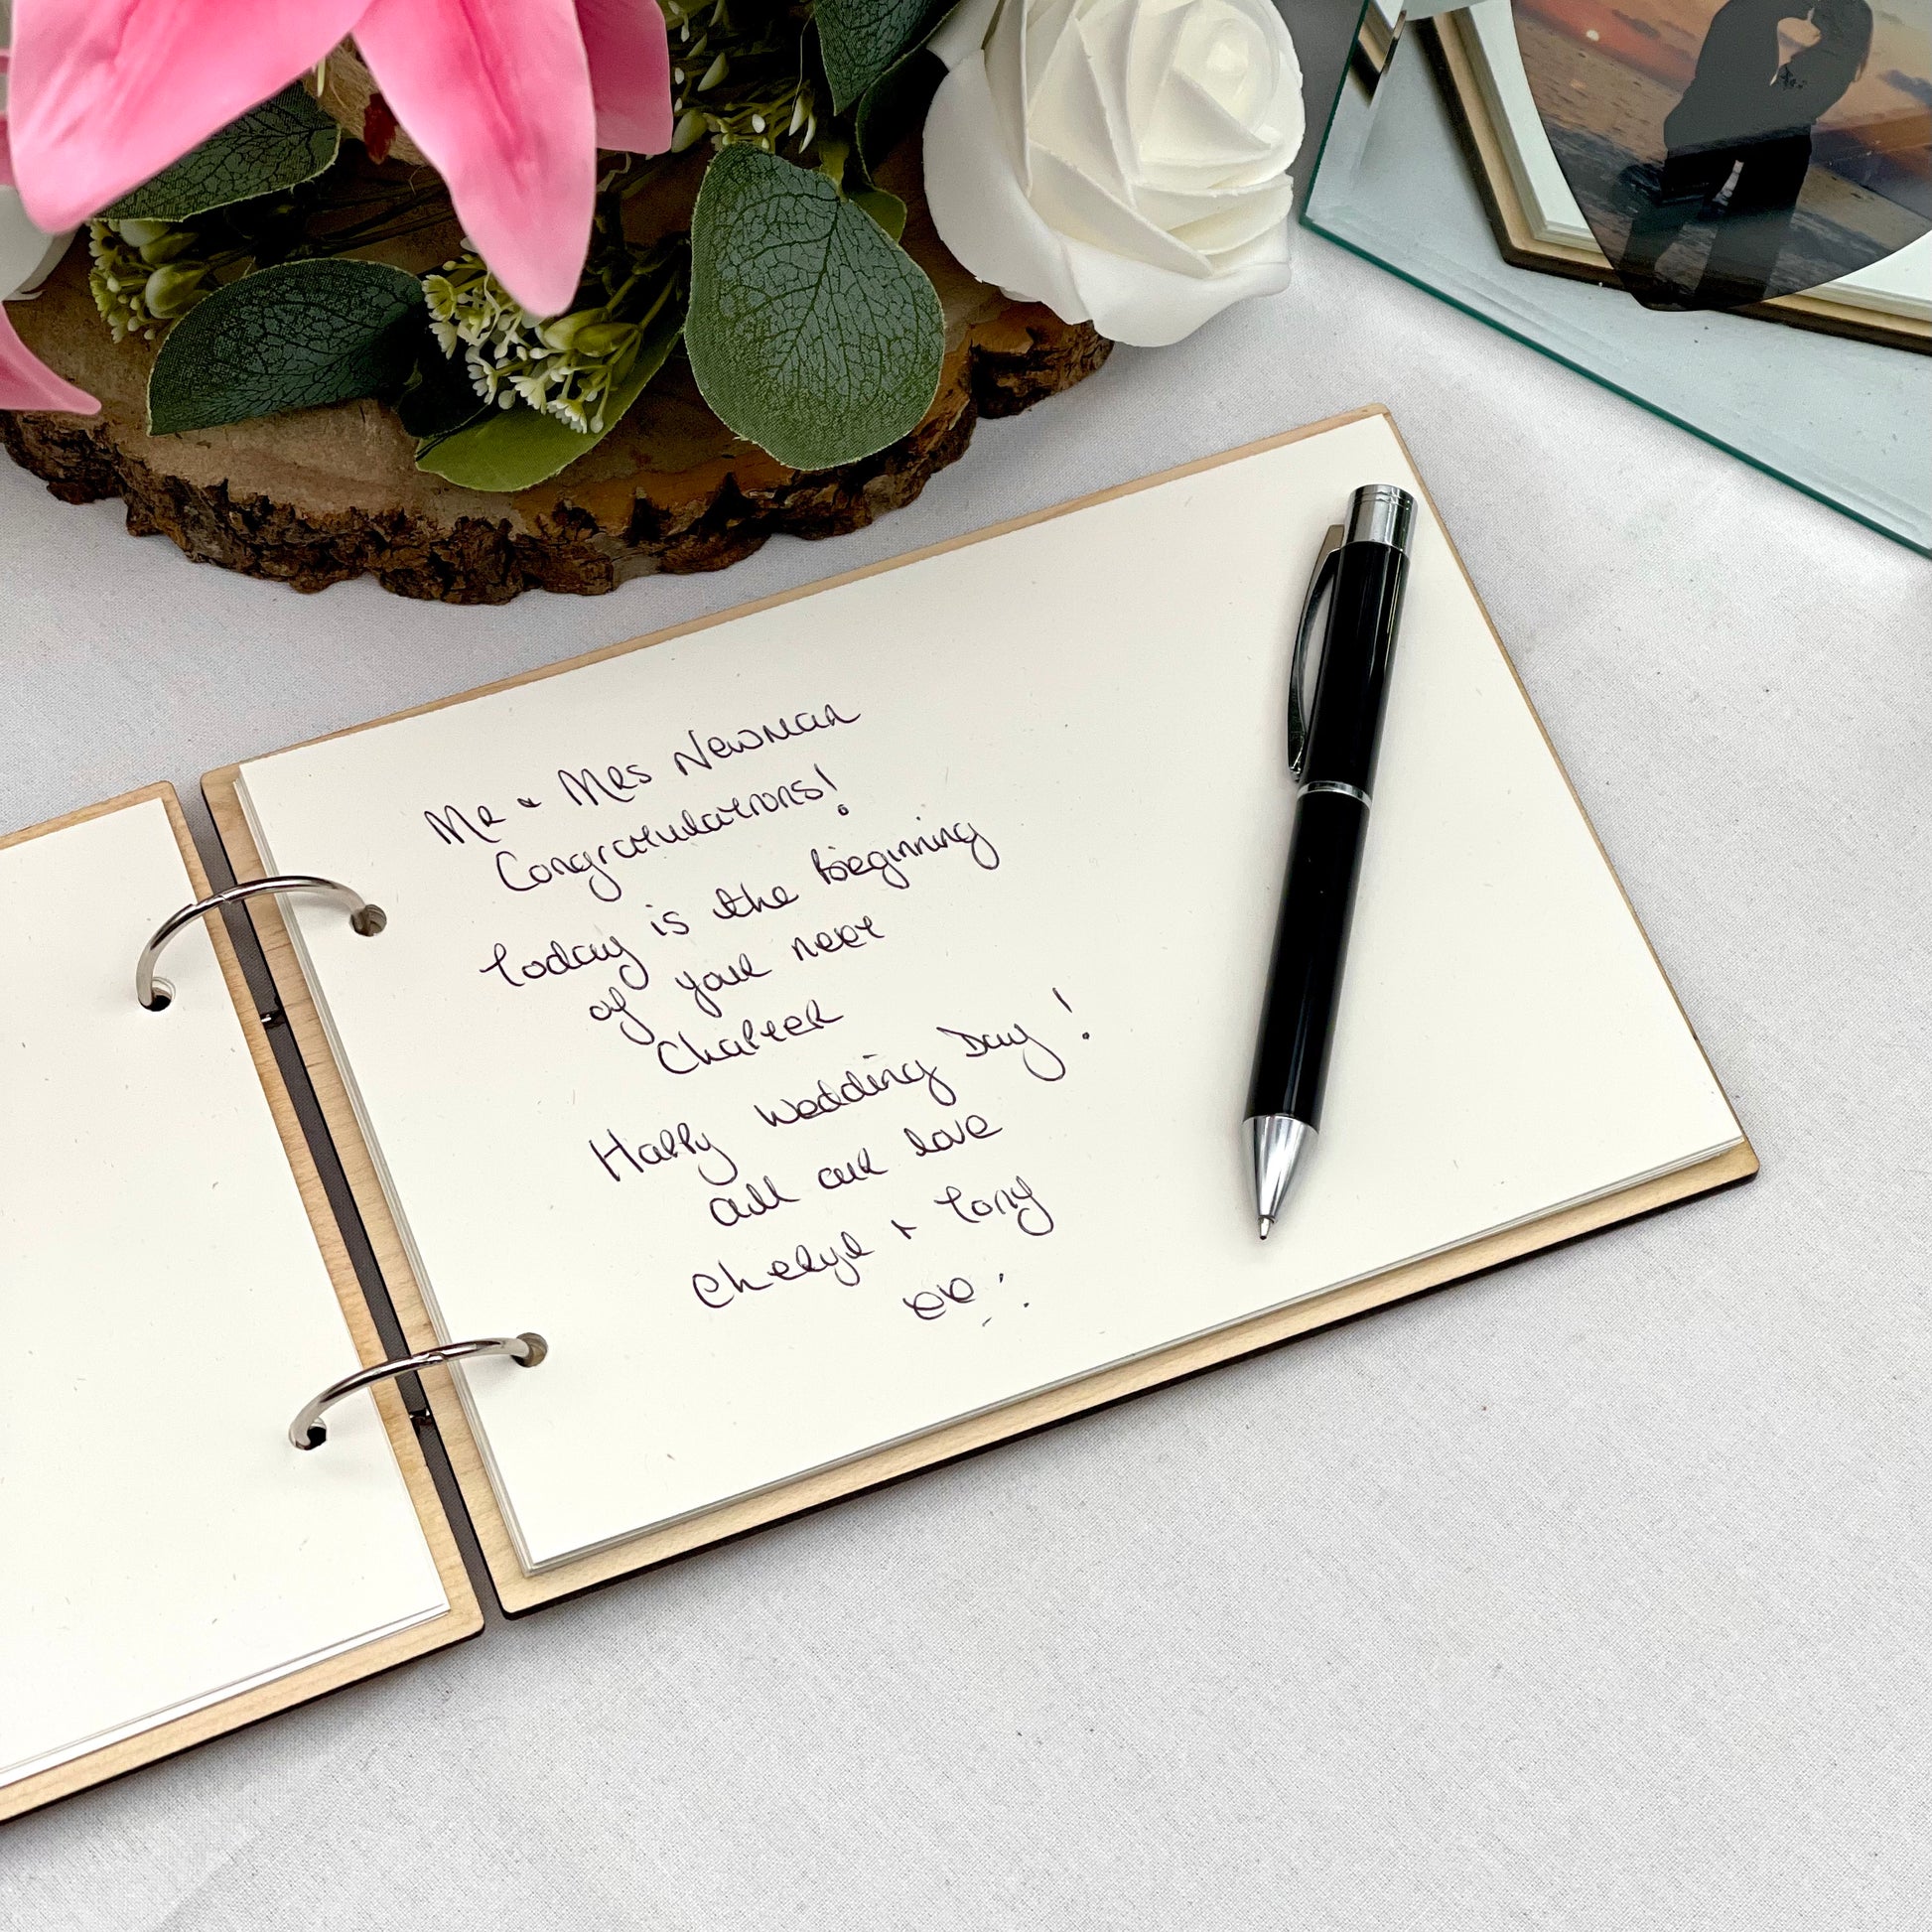 Mr & Mrs Newman
Congratulations!
Today is the Beginning
of your next
Chapter
Happy Wedding Day!
All our love
Cheryl + Tony